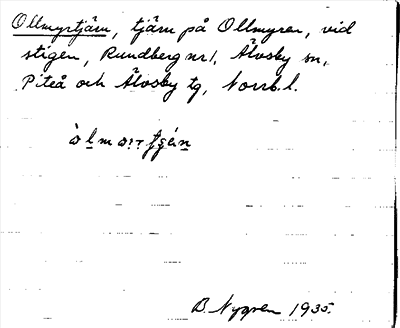 Ollmyrtjärn, tjärn på Ollmyren, vid
stigen, Rundberg nr 1, Älvsby sn,
Piteå och Älvsby tg, Norrb. l.
B. Nygren 1935.